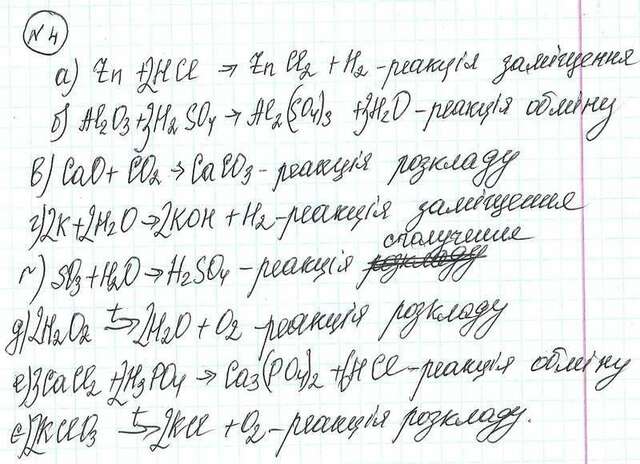 № 4
а) Zn + 2HCl → ZnCl₂ + H₂ - реакція заміщення
б) Al₂O₃ + 3H₂SO₄ → Al₂(SO₄)₃ + 3H₂O - реакція обміну
в) CaO + CO₂ → CaCO₃ - реакція розкладу
г) 2K + 2H₂O → 2KOH + H₂ - реакція заміщення
сполучення
ґ) SO₃ + H₂O → H₂SO₄ - реакція розкладу
д) 2H₂O₂ t→ 2H₂O + O₂ - реакція розкладу
е) 3CaCl₂ + 2H₃PO₄ → Ca₃(PO₄)₂ + 6HCl - реакція обміну
є) 2KClO₃ t→ 2KCl + O₂ - реакція розкладу.